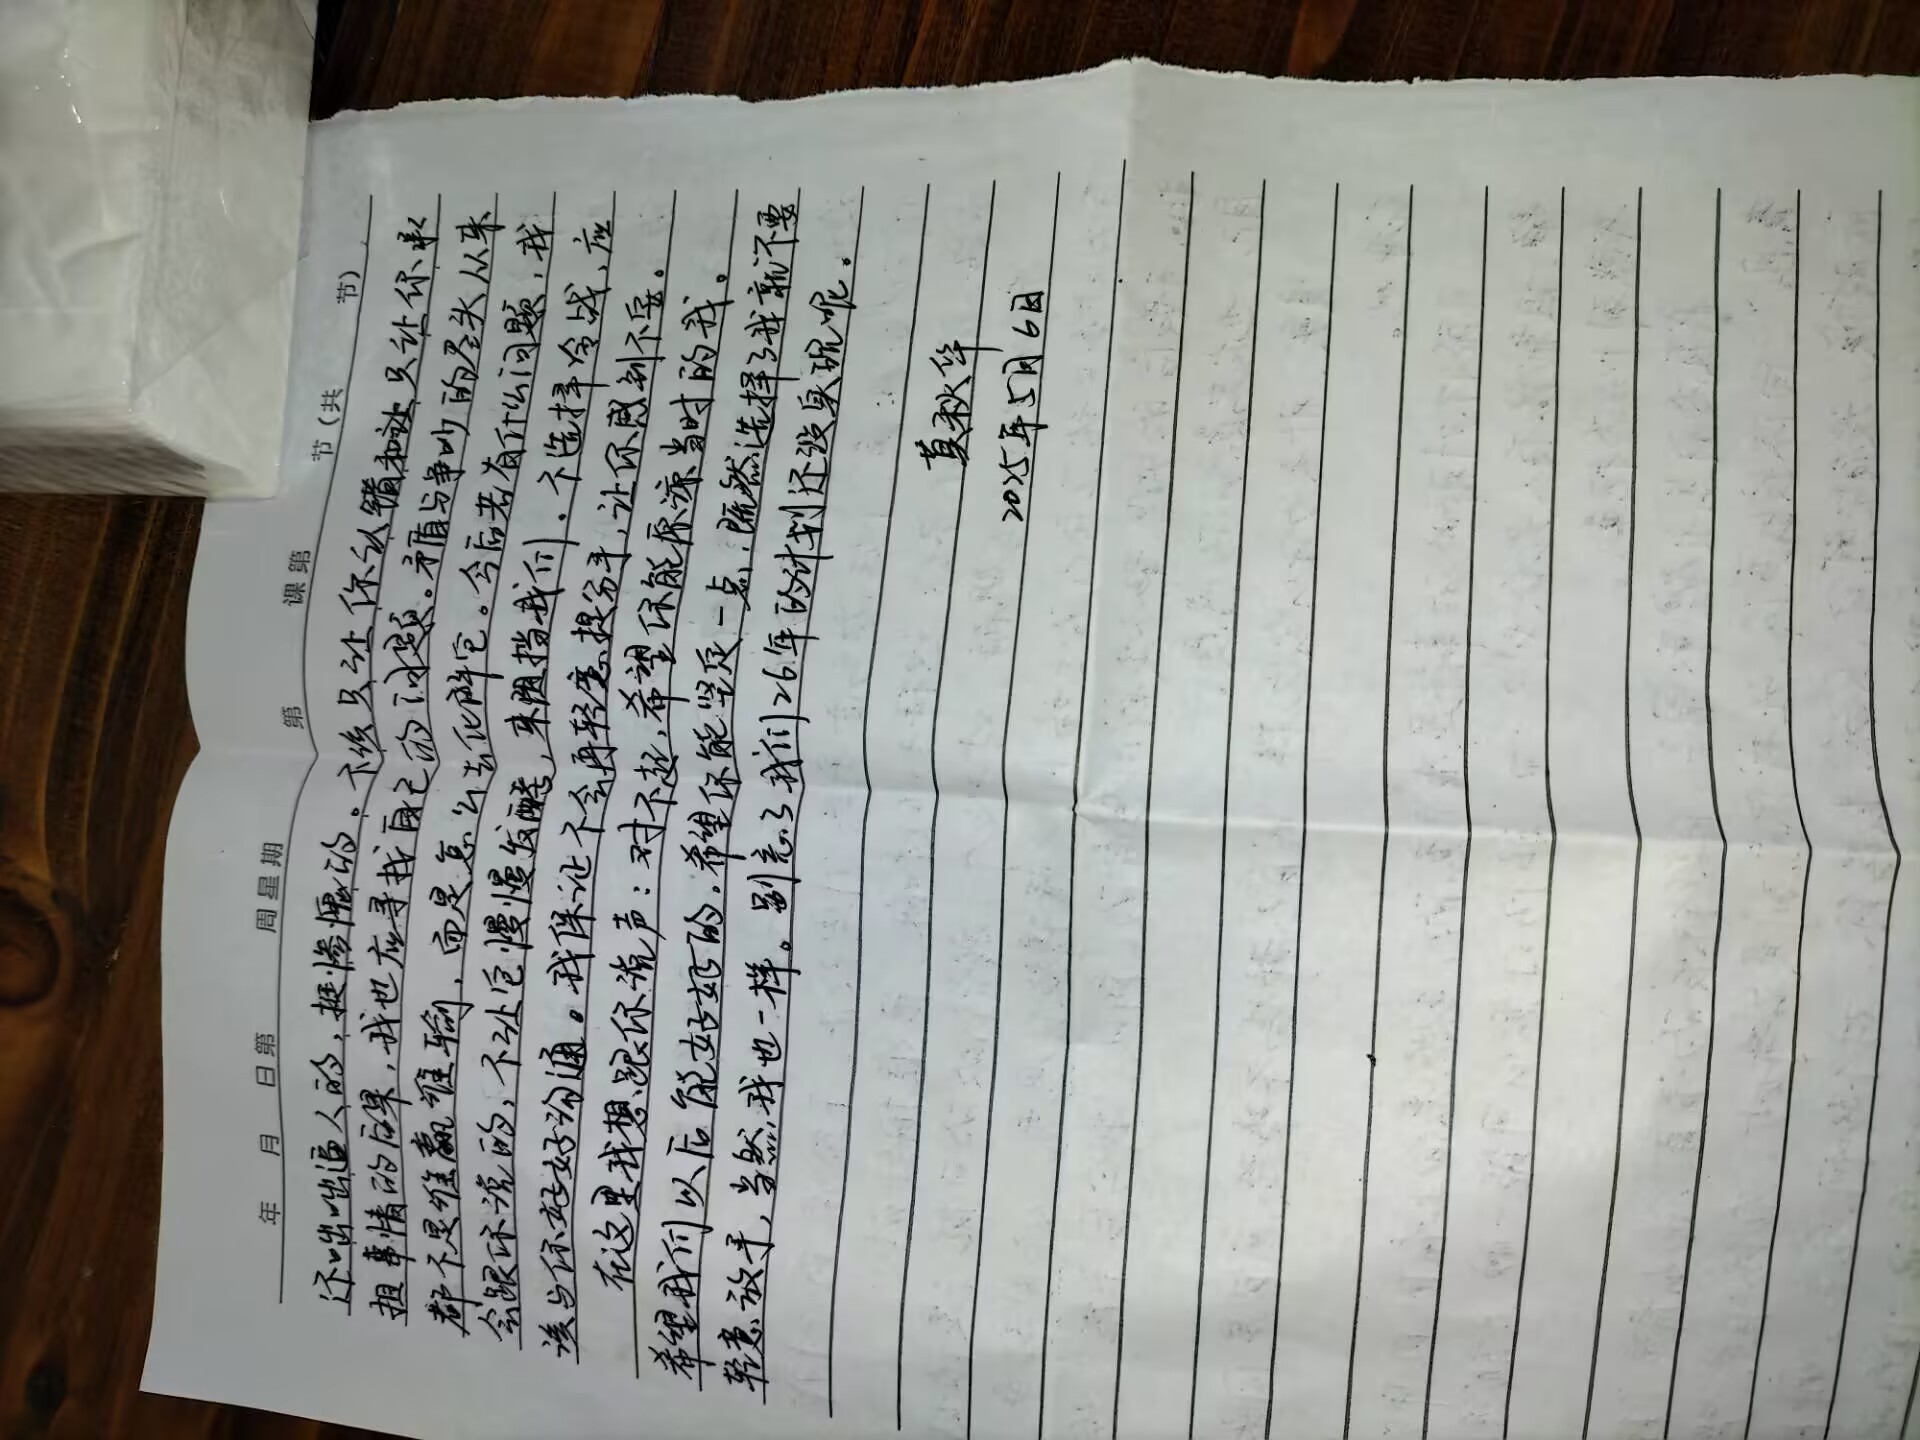 年 月 日 第 周 星期 第 课 第 节（共 节）
还咄咄逼人的，挺惭愧的。不该只让你认错和让只让你承
担事情的后果，我也应寻找自己的问题。矛盾与争吵的尽头从来
都不是谁赢谁输，而是怎么去化解它。今后若有什么问题，我
会跟你说的，不让它慢慢发酵，来阻挡我们．不选择冷战，应
该与你好好沟通。我保证不会再轻意提分手，让你感到不安。
在这里我想跟你说声：对不起，希望你能原谅当时的我。
希望我们以后能好好的．希望你能坚定一点，既然选择了我就不要
轻意放手，当然我也一样。别忘了我们26年的计划还没实现呢。
莫秋华
2025年5月6日